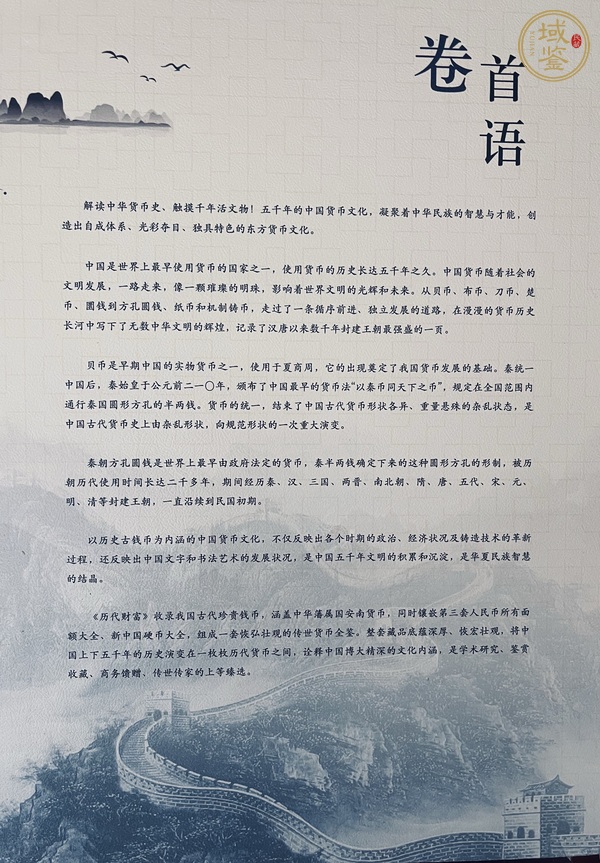 卷首语
域鉴
解读中华货币史、触摸千年活文物！五千年的中国货币文化，凝聚着中华民族的智慧与才能，创
造出自成体系、光彩夺目、独具特色的东方货币文化。
中国是世界上最早使用货币的国家之一，使用货币的历史长达五千年之久。中国货币随着社会的
文明发展，一路走来，像一颗璀璨的明珠，影响着世界文明的光辉和未来。从贝币、布币、刀币、楚
币、圜钱到方孔圆钱、纸币和机制铸币，走过了一条循序前进、独立发展的道路，在漫漫的货币历史
长河中写下了无数中华文明的辉煌，记录了汉唐以来数千年封建王朝最强盛的一页。
贝币是早期中国的实物货币之一，使用于夏商周，它的出现奠定了我国货币发展的基础。秦统一
中国后，秦始皇于公元前二一〇年，颁布了中国最早的货币法“以秦币同天下之币”，规定在全国范围内
通行秦国圆形方孔的半两钱。货币的统一，结束了中国古代货币形状各异、重量悬殊的杂乱状态，是
中国古代货币史上由杂乱形状，向规范形状的一次重大演变。
秦朝方孔圆钱是世界上最早由政府法定的货币，秦半两钱确定下来的这种圆形方孔的形制，被历
朝历代使用时间长达二千多年，期间经历秦、汉、三国、两晋、南北朝、隋、唐、五代、宋、元、
明、清等封建王朝，一直沿续到民国初期。
以历史古钱币为内涵的中国货币文化，不仅反映出各个时期的政治、经济状况及铸造技术的革新
过程，还反映出中国文字和书法艺术的发展状况，是中国五千年文明的积累和沉淀，是华夏民族智慧
的结晶。
《历代财富》收录我国古代珍贵钱币，涵盖中华藩属国安南货币，同时镶嵌第三套人民币所有面
额大全、新中国硬币大全，组成一套恢弘壮观的传世货币全鉴。整套藏品底蕴深厚、恢宏壮观，将中
国上下五千年的历史演变在一枚枚历代货币之间，诠释中国博大精深的文化内涵，是学术研究、鉴赏
收藏、商务馈赠、传世传家的上等臻选。